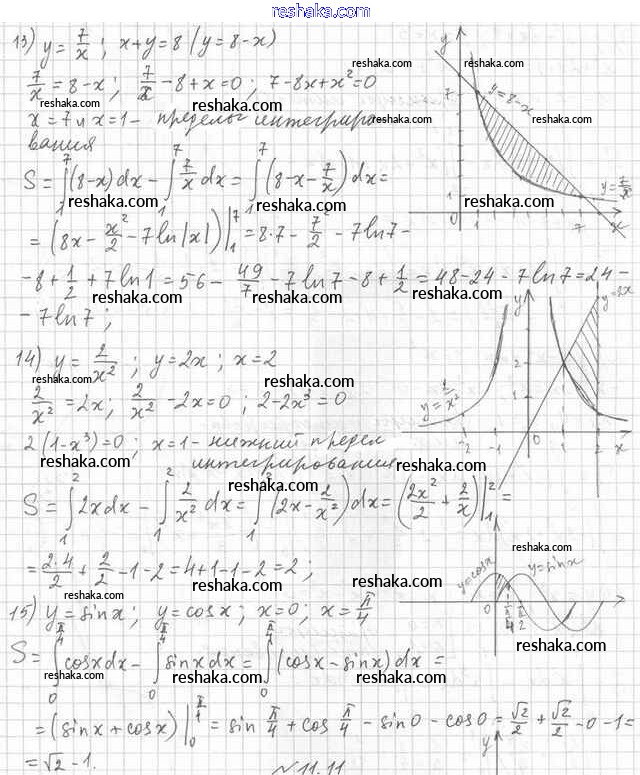 reshaka.com
13) y = 7/x ; x+y=8 (y=8-x)
7/x = 8-x ; 7/x - 8+x=0 ; 7-8x+x²=0
x=7 и x=1 - пределы интегриро-
вания
S = ∫₁⁷ (8-x)dx - ∫₁⁷ 7/x dx = ∫₁⁷ (8-x-7/x) dx =
= (8x - x²/2 - 7ln|x|) |₁⁷ = 8·7 - 7²/2 - 7ln7 -
-8 + 1/2 + 7ln1 = 56 - 49/7 - 7ln7 - 8 + 1/2 = 48-24 - 7ln7 = 24 -
- 7ln7 ;
y
7
y=8-x
1
0
1
7
x
y=7/x
14) y = 2/x² ; y=2x ; x=2
2/x² = 2x ; 2/x² - 2x=0 ; 2-2x³=0
2(1-x³)=0 ; x=1 - нижний предел
интегрирования
S = ∫₁² 2xdx - ∫₁² 2/x² dx = ∫₁² (2x - 2/x²) dx = (2x²/2 + 2/x) |₁² =
= 2·4/2 + 2/2 - 1 - 2 = 4+1-1-2 = 2 ;
y
y=2x
2
1
-2
-1
0
1
2
x
15) y=sinx ; y=cosx ; x=0 ; x=π/4
S = ∫₀^(π/4) cosxdx - ∫₀^(π/4) sinxdx = ∫₀^(π/4) (cosx-sinx)dx =
= (sinx+cosx) |₀^(π/4) = sin π/4 + cos π/4 - sin0 - cos0 = √2/2 + √2/2 - 0 - 1 =
= √2 - 1.
y=cosx
y=sinx
0
π/4
π/2
y
№11.11
reshaka.com
reshaka.com
reshaka.com
reshaka.com
reshaka.com
reshaka.com
reshaka.com
reshaka.com
reshaka.com
reshaka.com
reshaka.com
reshaka.com
reshaka.com
reshaka.com
reshaka.com
reshaka.com
reshaka.com
reshaka.com
reshaka.com
reshaka.com
reshaka.com
reshaka.com
reshaka.com
reshaka.com
reshaka.com